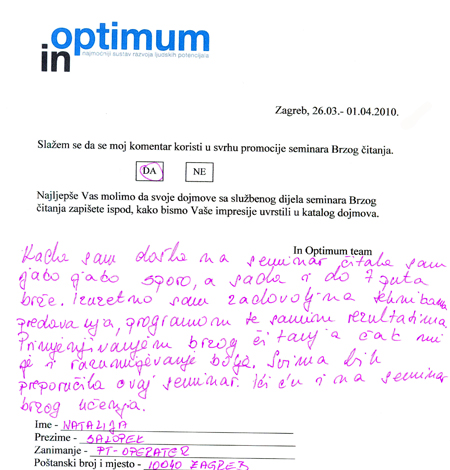 in optimum
najmoćniji sustav razvoja ljudskih potencijala
Zagreb, 26.03.- 01.04.2010.
Slažem se da se moj komentar koristi u svrhu promocije seminara Brzog čitanja.
DA NE
Najljepše Vas molimo da svoje dojmove sa službenog dijela seminara Brzog
čitanja zapišete ispod, kako bismo Vaše impresije uvrstili u katalog dojmova.
In Optimum team
Kada sam došla na seminar čitala sam
jako jako sporo, a sada i do 7 puta
brže. Izuzetno sam zadovoljna tehnikama
predavanja, programom te samim rezultatima
Primjenjivanjem brzog čitanja čak mi
je i razumijevanje bolje. Svima bih
preporučila ovaj seminar. Ići ću i na seminar
brzog učenja.
Ime - NATALIJA
Prezime - SALOPEK
Zanimanje - PT-OPERATER
Poštanski broj i mjesto - 10040 ZAGREB